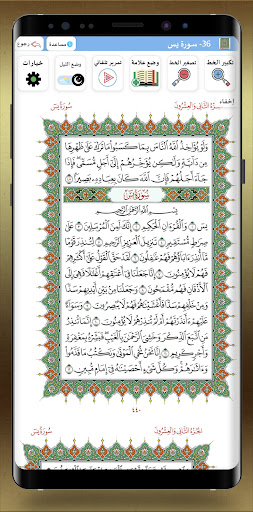 36- سورة يس
مساعدة
رجوع
تكبير الخط
تصغير الخط
وضع علامة
تمرير تلقائي
وضع الليل
خيارات
إخفاء
الجزء الثاني والعشرون
سورة يس
وَلَوْ يُؤَاخِذُ اللَّهُ النَّاسَ بِمَا كَسَبُوا مَا تَرَكَ عَلَىٰ ظَهْرِهَا
مِن دَابَّةٍ وَلَٰكِن يُؤَخِّرُهُمْ إِلَىٰ أَجَلٍ مُّسَمًّى فَإِذَا
جَاءَ أَجَلُهُمْ فَإِنَّ اللَّهَ كَانَ بِعِبَادِهِ بَصِيرًا
سُورَةُ يسٓ
بِسْمِ اللَّهِ الرَّحْمَٰنِ الرَّحِيمِ
يسٓ ١ وَالْقُرْآنِ الْحَكِيمِ ٢ إِنَّكَ لَمِنَ الْمُرْسَلِينَ ٣ عَلَىٰ
صِرَاطٍ مُّسْتَقِيمٍ ٤ تَنزِيلَ الْعَزِيزِ الرَّحِيمِ ٥ لِتُنذِرَ قَوْمًا
مَّا أُنذِرَ آبَاؤُهُمْ فَهُمْ غَافِلُونَ ٦ لَقَدْ حَقَّ الْقَوْلُ عَلَىٰ
أَكْثَرِهِمْ فَهُمْ لَا يُؤْمِنُونَ ٧ إِنَّا جَعَلْنَا فِي أَعْنَاقِهِمْ أَغْلَالًا فَهِيَ إِلَى
الْأَذْقَانِ فَهُم مُّقْمَحُونَ ٨ وَجَعَلْنَا مِن بَيْنِ أَيْدِيهِمْ سَدًّا
وَمِنْ خَلْفِهِمْ سَدًّا فَأَغْشَيْنَاهُمْ فَهُمْ لَا يُبْصِرُونَ ٩
وَسَوَاءٌ عَلَيْهِمْ أَأَنذَرْتَهُمْ أَمْ لَمْ تُنذِرْهُمْ لَا يُؤْمِنُونَ ١٠ إِنَّمَا تُنذِرُ
مَنِ اتَّبَعَ الذِّكْرَ وَخَشِيَ الرَّحْمَٰنَ بِالْغَيْبِ فَبَشِّرْهُ بِمَغْفِرَةٍ
وَأَجْرٍ كَرِيمٍ ١١ إِنَّا نَحْنُ نُحْيِي الْمَوْتَىٰ وَنَكْتُبُ مَا قَدَّمُوا
وَآثَارَهُمْ وَكُلَّ شَيْءٍ أَحْصَيْنَاهُ فِي إِمَامٍ مُّبِينٍ ١٢
٤٤٠
الجزء الثاني والعشرون
سورة يس